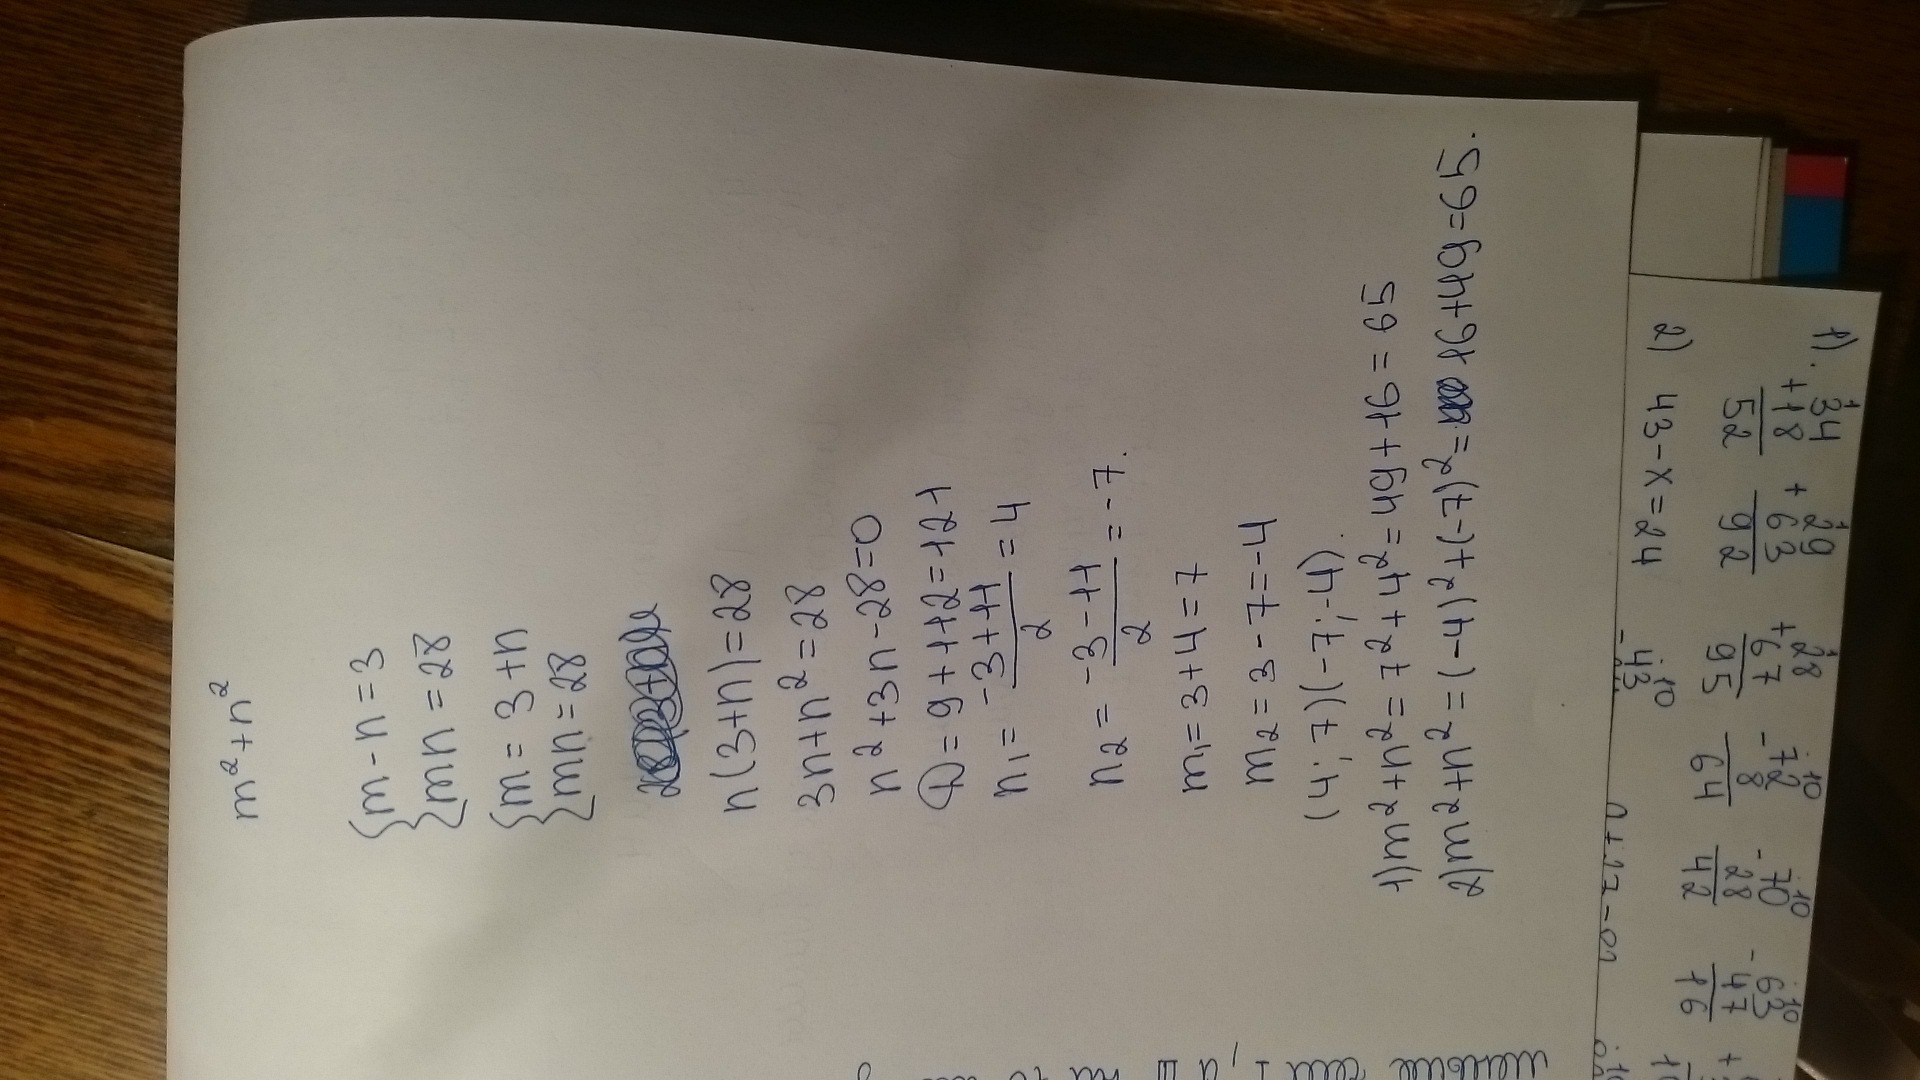 m²+n²
{m-n=3
{mn=28
{m=3+n
{mn=28
n(3+n)=28
3n+n²=28
n²+3n-28=0
D=9+112=121
n₁=(-3+11)/2=4
n₂=(-3-11)/2=-7.
m₁=3+4=7
m₂=3-7=-4
(4;7)(-7;-4).
1)m²+n²=7²+4²=49+16=65
2)m²+n²=(-4)²+(-7)²=16+49=65.
1). 34 +18 52 +29 63 92 +28 67 95 -72 8 64 -70 28 42 -63 47 16
2) 43-x=24
-43